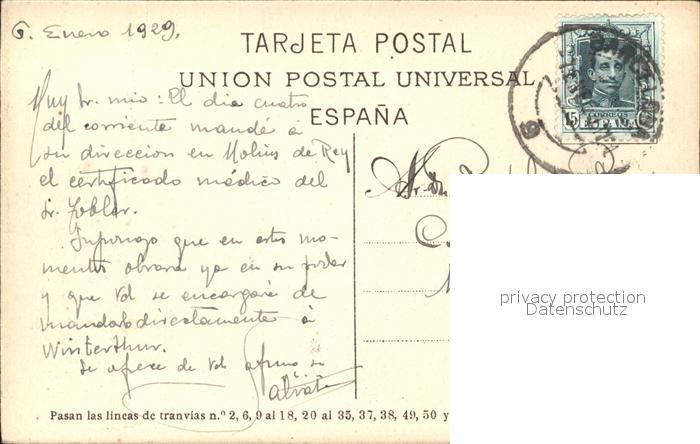 6. Enero 1929.
TARJETA POSTAL
UNION POSTAL UNIVERSAL
ESPAÑA
Muy Sr. mio: El dia cuatro
del corriente mandé á
su direccion en Molins de Rey
el certificado médico del
Sr. Tobler.
Supongo que en estos mo-
mentos obrará ya en su poder
y que Vd se encargará de
mandarlo directamente á
Winterthur.
Se ofrece de Vd afmo s.s.
Sr. Dn.
15
CORREOS
ESPAÑA
privacy protection
Datenschutz
Pasan las líneas de tranvías n.º 2, 6, 9 al 18, 20 al 35, 37, 38, 49, 50 y